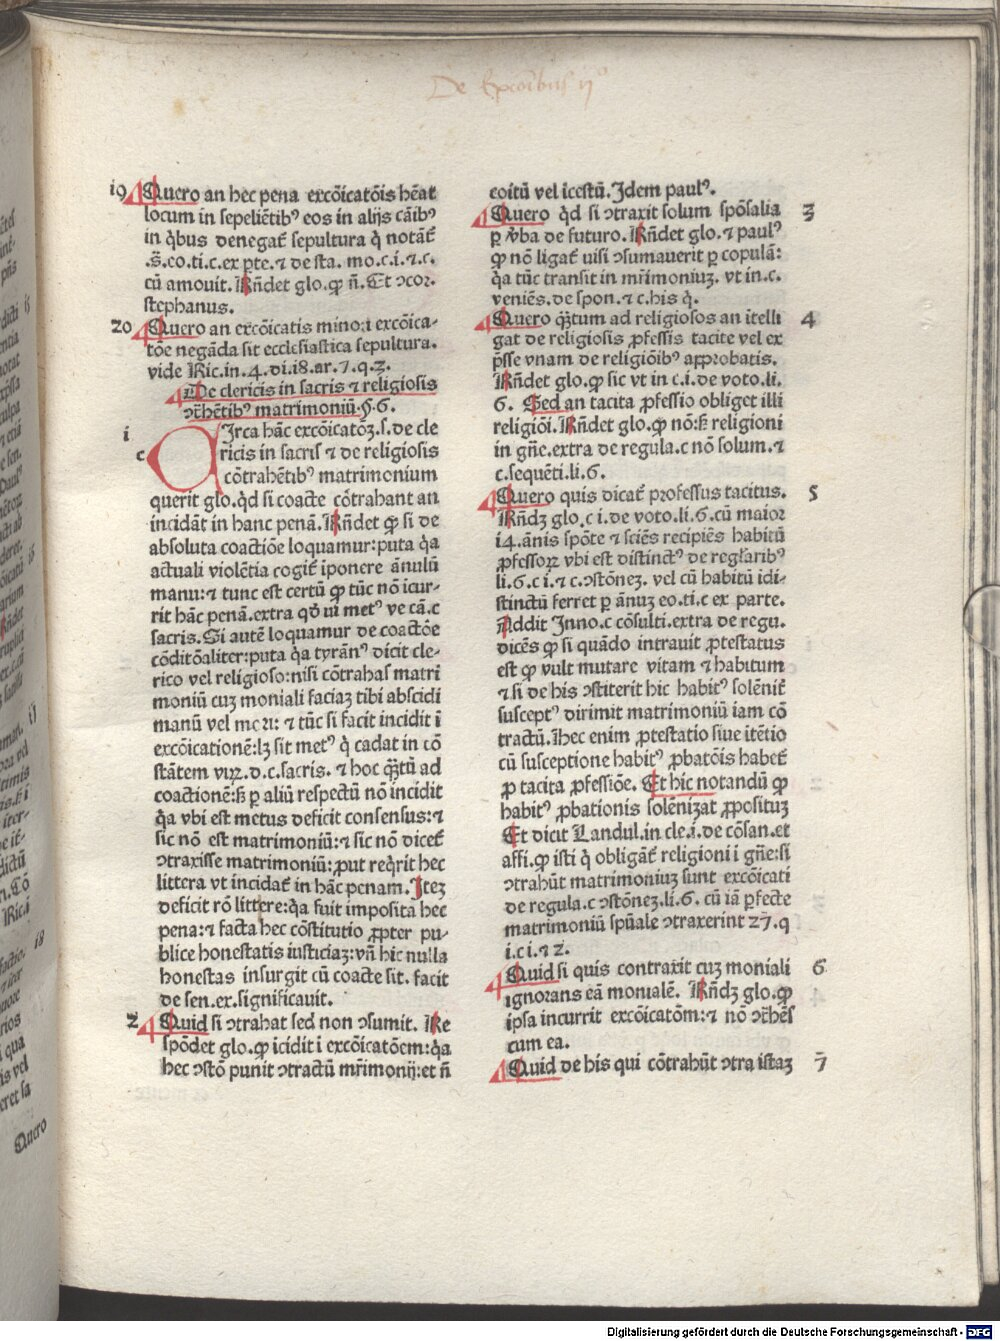 De Excōibus ijº
19 Quero an hec pena excōicatōis hēat
locum in sepeliētibꝰ eos in alijs cāibꝰ
in q̇bus denegat̄ sepultura q̇ notāt̄
.s̄.eo.ti.c.ex p̱te.⁊ de sta. mo.c.i.⁊.c.
cū amouit. Rn̄det glo.ꝙ n̄. Et ꝯcor.
stephanus.
20 Quero an excōicatis minori excōica-
tōe negāda sit ecclesiastica sepultura.
vide Ric.in.4.di.18.ar.7.q.3.
De clericis in sacris ⁊ religiosis
ꝯt̄hētibꝰ matrimoniū.§.6.
1 c Irca hāc excōicatōꝫ.s.de cle
ricis in sacris ⁊ de religiosis
cōtrahētibꝰ matrimonium
querit glo.q̇d si coacte cōtrahant an
incidāt in hanc penā. Rn̄det ꝙ si de
absoluta coactiōe loquamur:puta q̇a
actuali violētia cogit̄ iponere ānulū
manu:⁊ tunc est certū ꝙ tūc nō icur-
rit hāc penā.extra qd̄ vi metꝰ ve cā.c
sacris. Si autē loquamur de coactōe
cōditōaliter:puta q̇a tyrānꝰ dicit cle-
rico vel religioso:nisi cōtrahas matri
moniū cuꝫ moniali faciaꝫ tibi abscidi
manū vel mori: ⁊ tūc si facit incidit ī
excōicationē:lꝫ sit metꝰ q̇ cadat in cō
stātem viꝝ.d.c.sacris. ⁊ hoc qꝫ̄tū ad
coactionē:sꝫ ꝑ aliū respectū nō incidit
q̇a vbi est metus deficit consensus:⁊
sic nō est matrimoniū:⁊ sic nō dicet̄
ꝯtraxisse matrimoniū:ꝓut req̇rit hec
littera vt incidat̄ in hāc penam. Iteꝫ
deficit rō littere:q̇a fuit imposita hec
pena:⁊ facta hec cōstitutio ꝓpter pu-
blice honestatis iusticiaꝫ:vn̄ hic nulla
honestas insurgit cū coacte sit. facit
de sen.ex.significauit.
2 Quid si ꝯtrahat sed non ꝯsumit. Re
spōdet glo.ꝙ icidit i excōicatōem:q̇a
hec ꝯstō punit ꝯtractū mr̄imonij:et n̄
coitū vel icestū. Idem paulꝰ.
Quero q̇d si ꝯtraxit solum spōsalia 3
ꝑ v̄ba de futuro. Rn̄det glo.⁊ paulꝰ
ꝙ nō ligat̄ nisi ꝯsumauerit ꝑ copulā:
q̇a tūc transit in mr̄imoniuꝫ. vt in.c.
veniēs.de spon.⁊ c.his q̇.
Quero qꝫ̄tum ad religiosos an itelli 4
gat de religiosis ꝓfessis tacite vel ex
p̄sse vnam de religiōibꝰ approbatis.
Rn̄det glo.ꝙ sic vt in c.i.de voto.li.
6. Sed an tacita ꝓfessio obliget illi
religiōi. Rn̄det glo.ꝙ nō:sꝫ religioni
in gn̄e.extra de regula.c nō solum.⁊
c.sequēti.li.6.
Quero quis dicat̄ professus tacitus. 5
Rn̄dꝫ glo.c i.de voto.li.6.cū maior
14.ānis spōte ⁊ sciēs recipiēs habitū
ꝓfessoꝝ vbi est distinctꝰ de regl̄aribꝰ
li.6.c i.⁊ c.ꝯstōneꝫ. vel cū habitū idi-
stinctū ferret ꝑ ānuꝫ eo.ti.c ex parte.
Addit Inno.c cōsulti.extra de regu.
dicēs ꝙ si quādo intrauit ꝓtestatus
est ꝙ vult mutare vitam ⁊ habitum
⁊ si de his ꝯstiterit hic habitꝰ solēnit̄
susceptꝰ dirimit matrimoniū iam cō
tractū. Hec enim ꝓtestatio siue itētio
cū susceptione habitꝰ ꝓbatōis habet̄
ꝓ tacita ꝓfessiōe. Et hic notandū ꝙ
habitꝰ ꝓbationis solēnizat ꝓposituꝫ
Et dicit Landul.in cle.i.de cōsan.et
affi.ꝙ isti q̇ obligāt̄ religioni i gn̄e:si
ꝯtrahūt matrimoniuꝫ sunt excōicati
de regula.c ꝯstōneꝫ.li.6. cū iā ꝑfecte
matrimoniū spūale ꝯtraxerint 27.q
i.c i.⁊ 2.
Quid si quis contraxit cuꝫ moniali 6
ignorans eā monialē. Rn̄dꝫ glo.ꝙ
ipsa incurrit excōicatōm:⁊ nō ꝯt̄hēs
cum ea.
Quid de his qui cōtrahūt ꝯtra istaꝫ 7
Quero
Digitalisierung gefördert durch die Deutsche Forschungsgemeinschaft - DFG